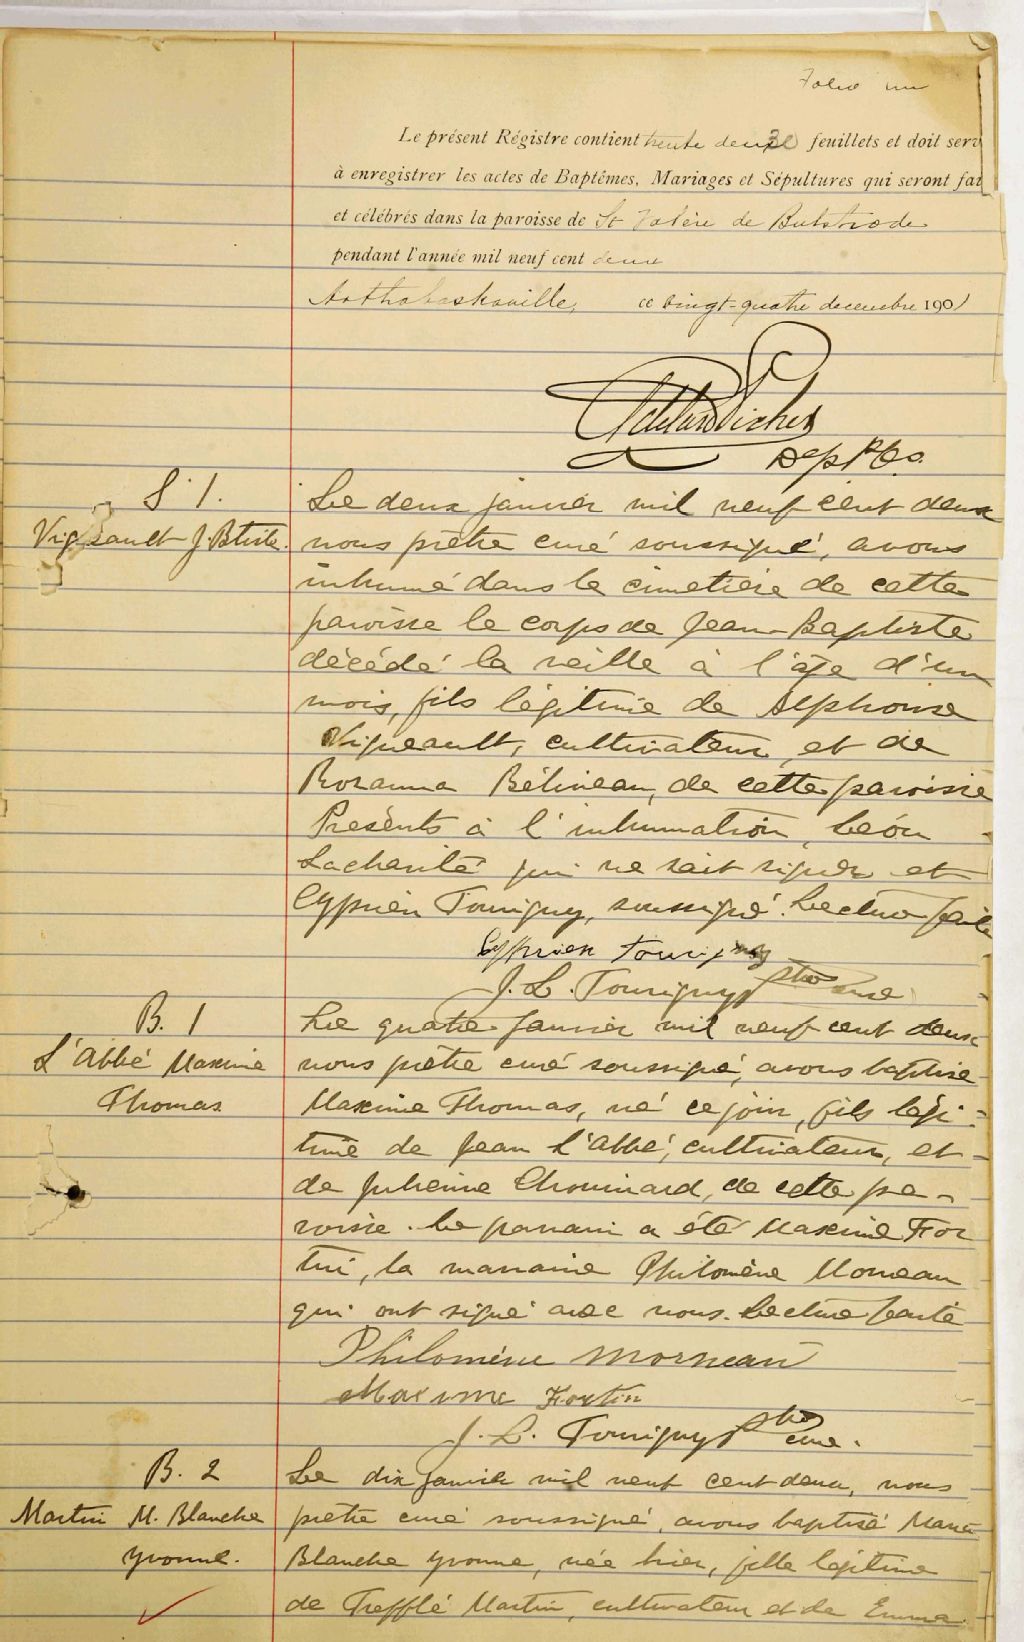 Folio un
Le présent Régistre contient trente deux 32 feuillets et doit serv
à enregistrer les actes de Baptêmes, Mariages et Sépultures qui seront fai
et célébrés dans la paroisse de St Valère de Bulstrode
pendant l'année mil neuf cent deux
Arthabaskaville, ce vingt-quatre decembre 1901
Adelard Picher
Dep P.C.S.
S. 1.
Vigneault J. Btiste.
Le deux janvier mil neuf cent deux
nous prêtre curé soussigné, avons
inhumé dans le cimetière de cette
paroisse le corps de Jean-Baptiste
décédé la veille à l'âge d'un
mois, fils légitime de Alphonse
Vigneault, cultivateur, et de
Rosanna Béliveau, de cette paroisse
Présents à l'inhumation, Léon
Lacharité qui ne sait signer et
Cyprien Tourigny, soussigné. Lecture faite
Cyprien Tourigny
J. L. Tourigny ptre curé
B. 1
L'Abbé Maxime
Thomas
Le quatre janvier mil neuf cent deux
nous prêtre curé soussigné, avons baptisé
Maxime Thomas, né ce jour, fils légi-
time de Jean L'Abbé, cultivateur, et
de Julienne Chouinard, de cette pa-
roisse. Le parrain a été Maxime For
tin, la marraine Philomène Morneau
qui ont signé avec nous. Lecture faite
Philomène Morneau
Maxime Fortin
J. L. Tourigny ptre curé.
B. 2
Martin M. Blanche
Yvonne.
Le dix janvier mil neuf cent deux, nous
prêtre curé soussigné, avons baptisé Marie
Blanche Yvonne, née hier, fille légitime
de Trefflé Martin, cultivateur et de Emma